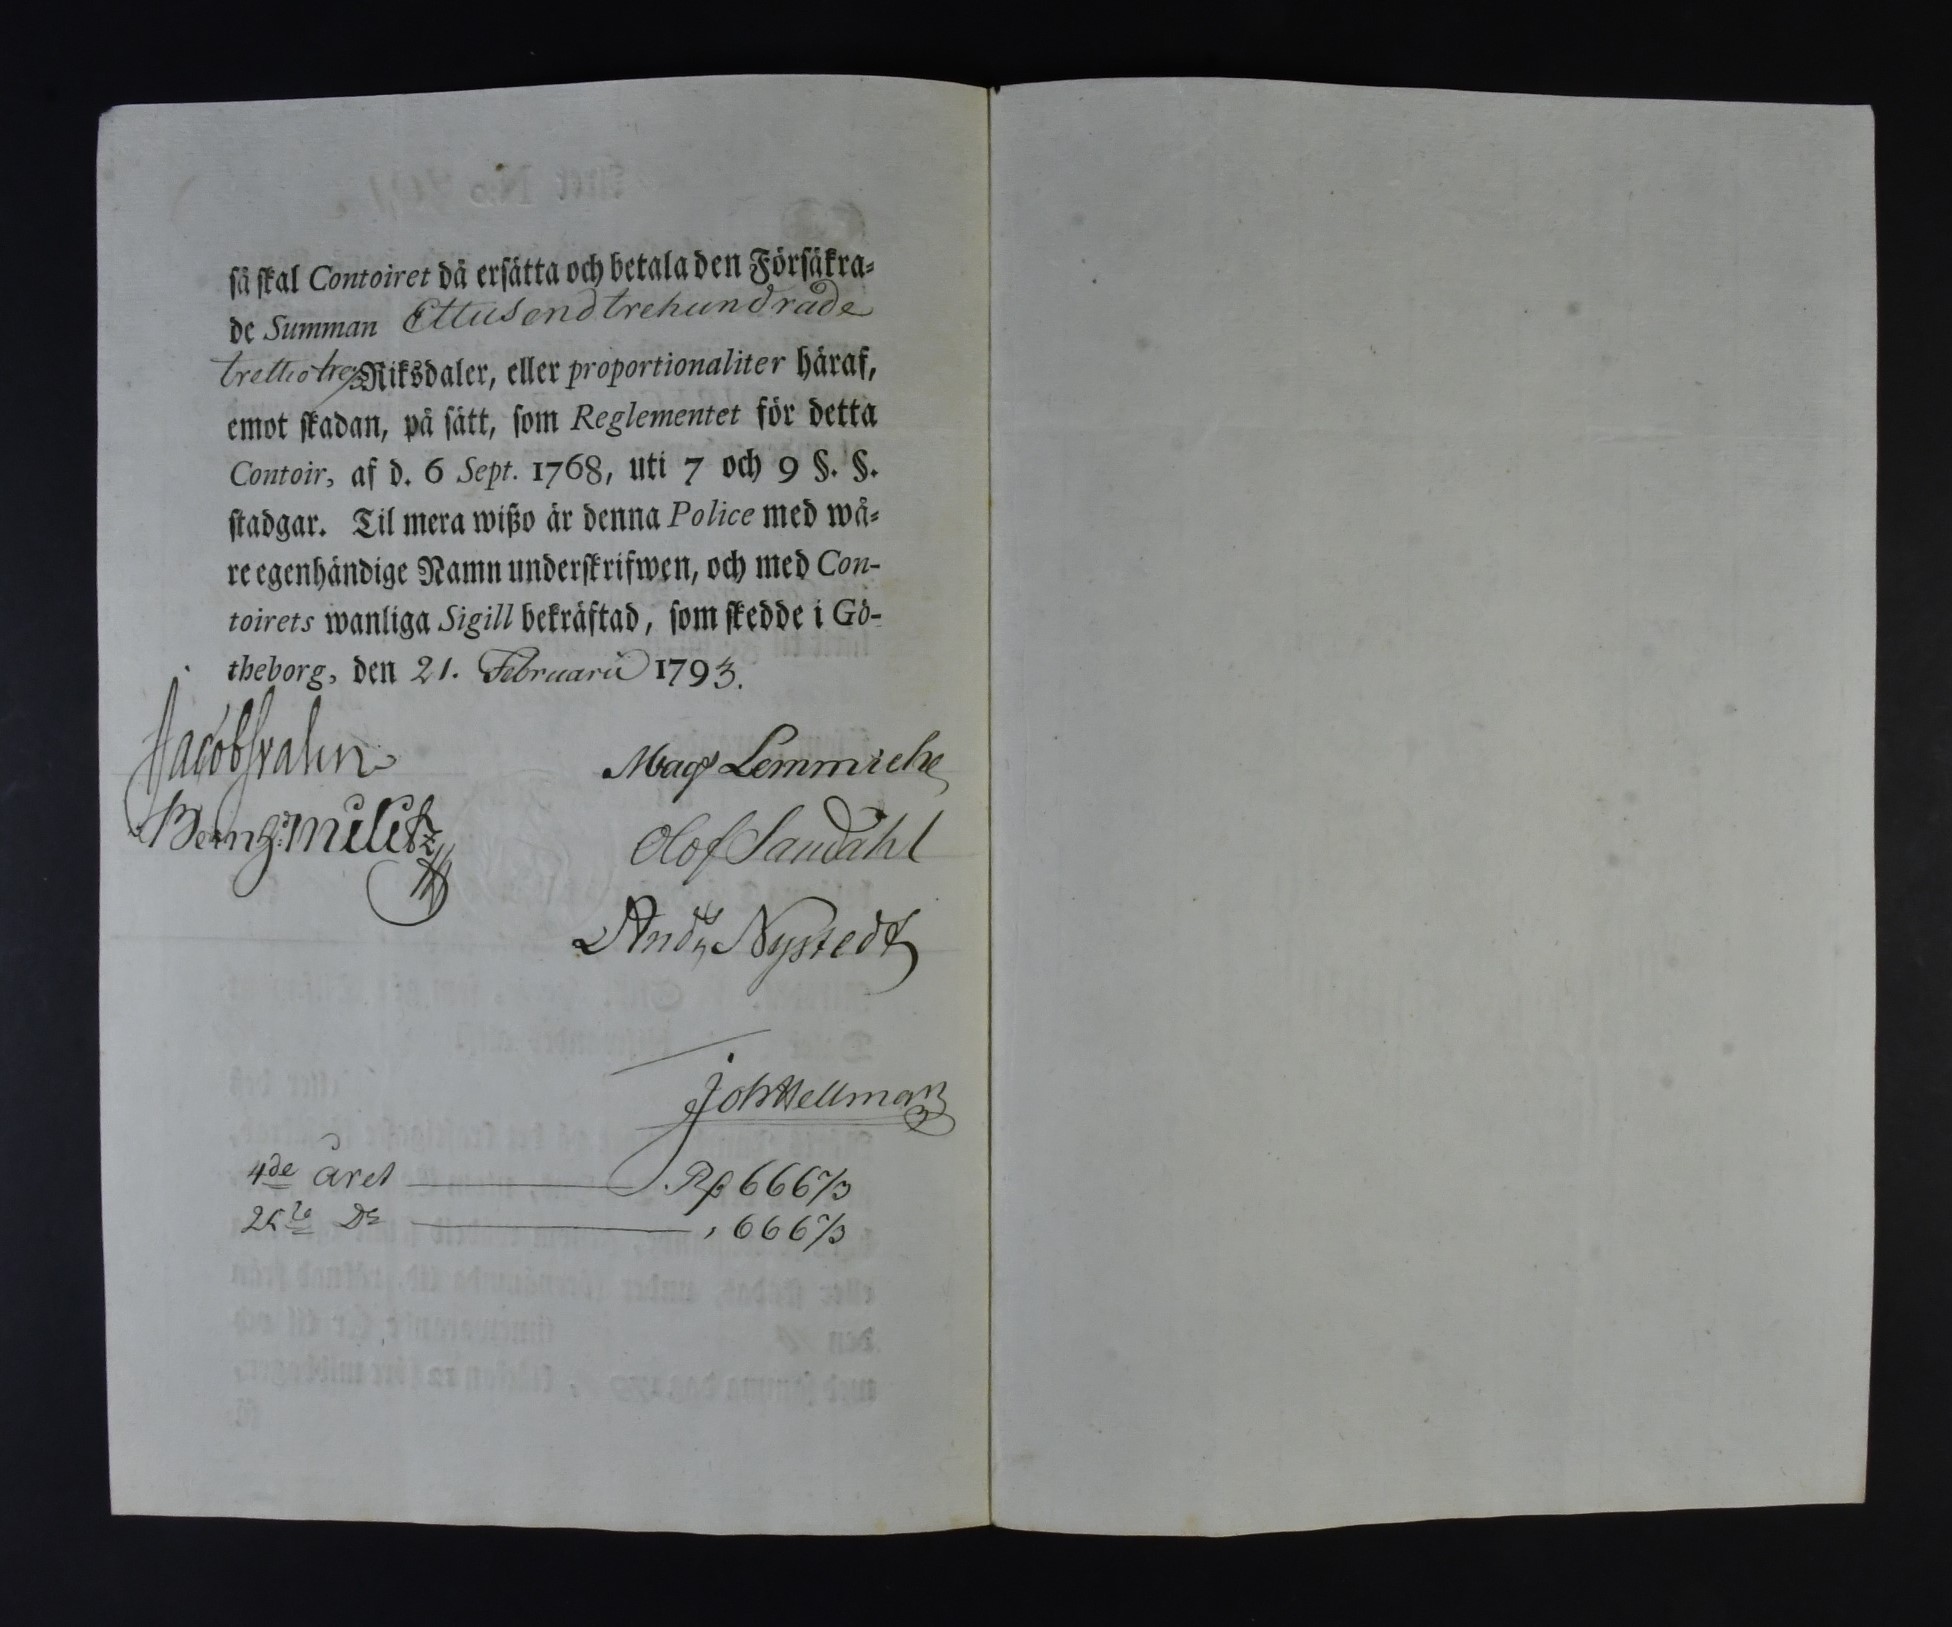 så skal Contoiret då ersätta och betala den Försäkra=
de Summan Ettusend trehundrade
trettiotre Riksdaler, eller proportionaliter häraf,
emot skadan, på sätt, som Reglementet för detta
Contoir, af d. 6 Sept. 1768, uti 7 och 9 §. §.
stadgar. Til mera wißo är denna Police med wå=
re egenhändige Namn underskrifwen, och med Con-
toirets wanliga Sigill bekräftad, som skedde i Gö-
theborg, den 21. Februarii 1793.
Jacob Svahn
Mags Lemmiche
Beng: Militz
Olof Sandahl
Ands Nystedt
Joh Hellman
4de året Rß 666 2/3
Do , 666 2/3